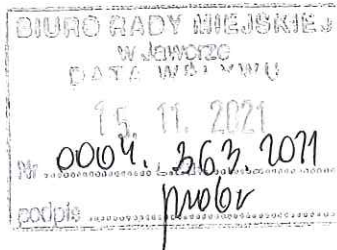 BIURO RADY MIEJSKIEJ
w Jaworze
DATA WPŁYWU
15. 11. 2021
Nr 0004. 363. 2021
podpis